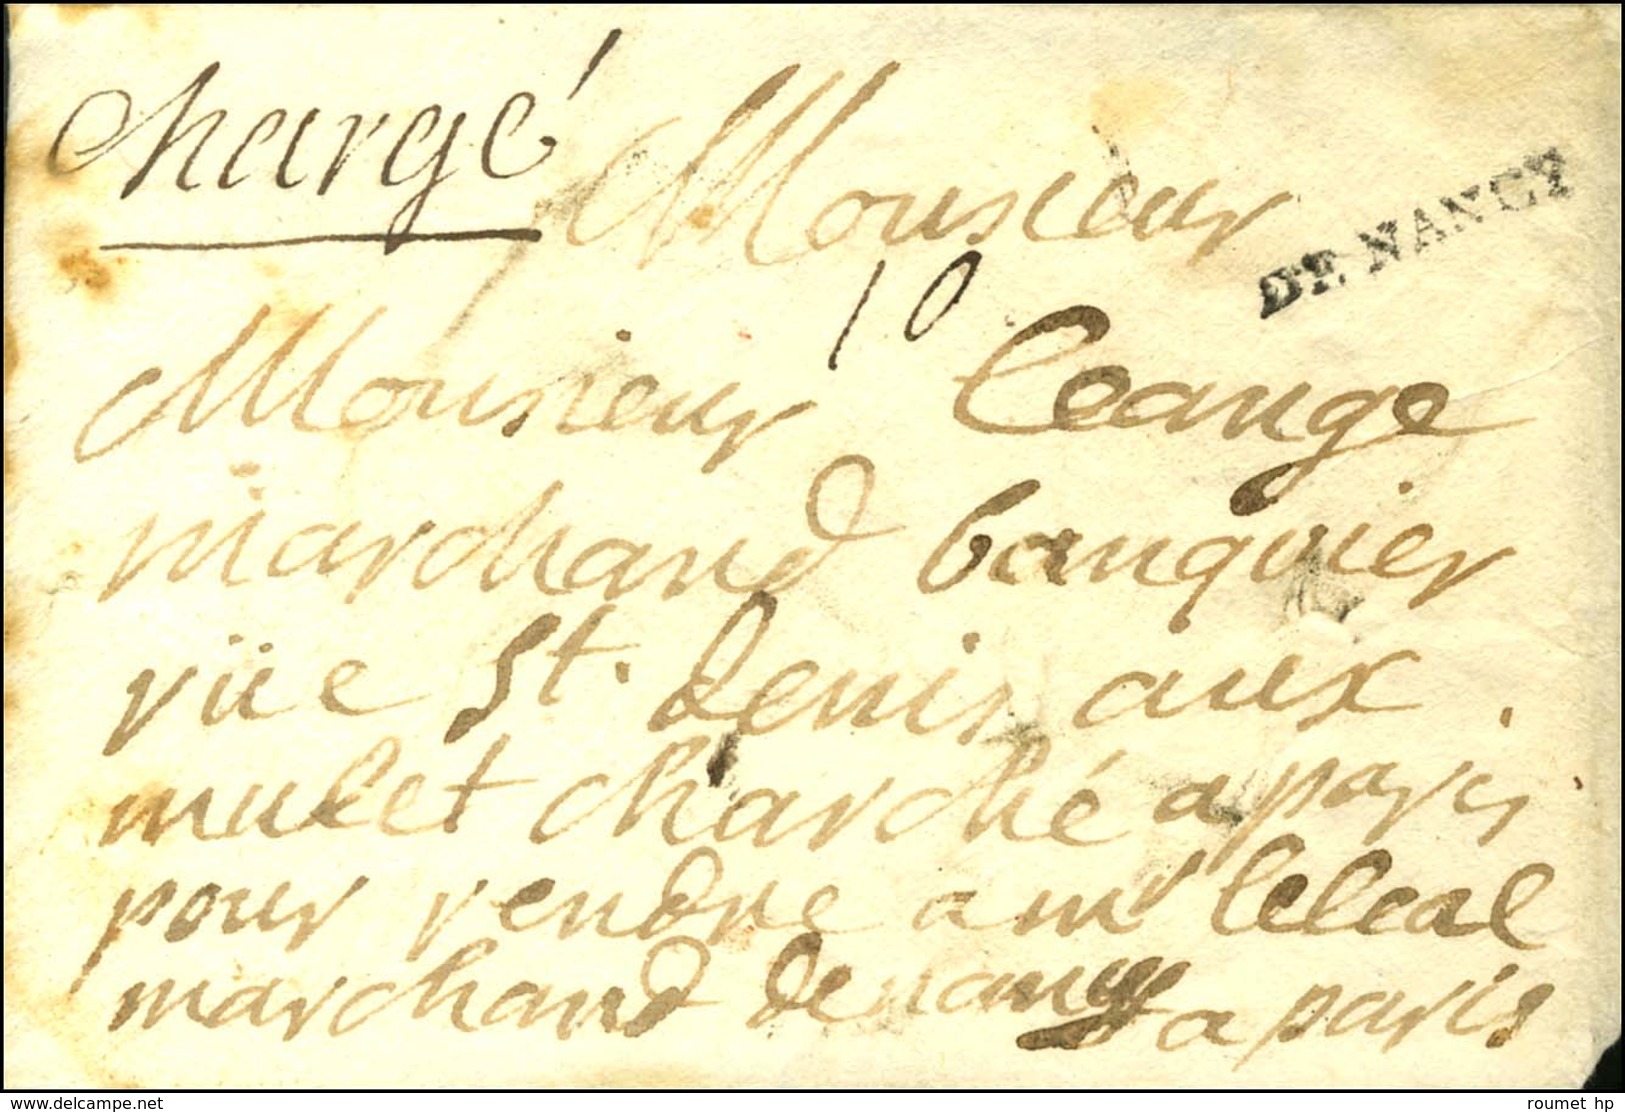 chargé
Monsieur
DE NANCY
10
Monsieur Leange
marchand banquier
rüe St. denis aux
mulet charché a paris
pour rendre a mr leleal
marchand de nancy a paris
www.delcampe.net
roumet hp